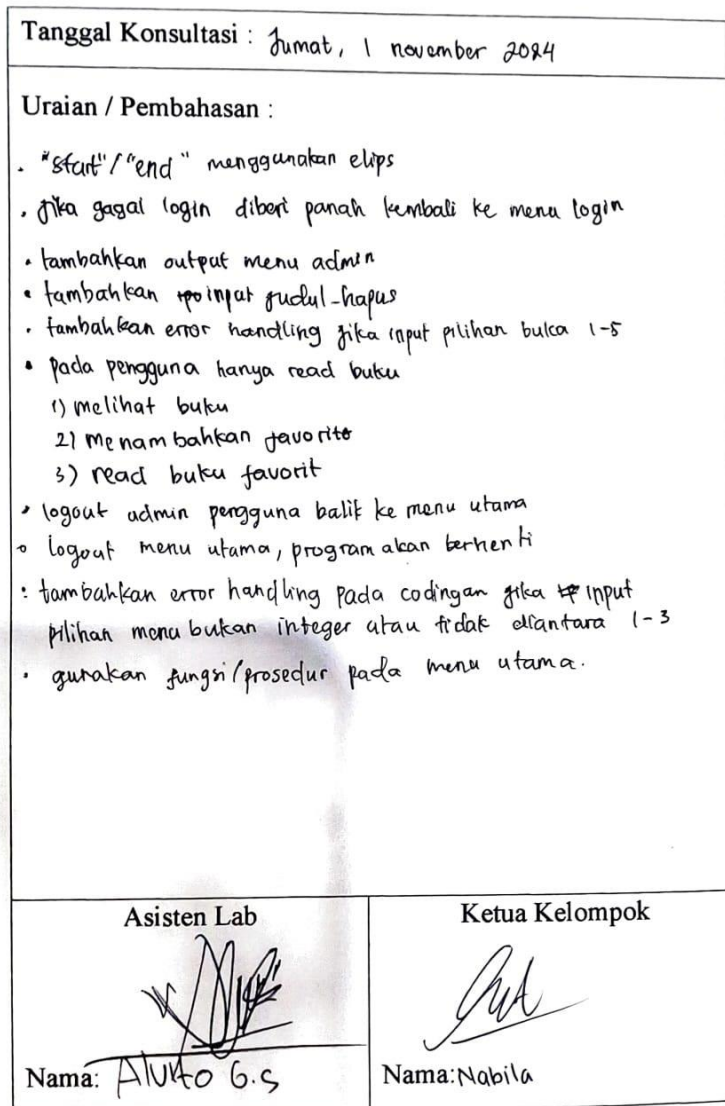 Tanggal Konsultasi : Jumat, 1 november 2024
Uraian / Pembahasan :
. "start"/"end" menggunakan elips
. jika gagal login diberi panah kembali ke menu login
. tambahkan output menu admin
. tambahkan input judul-hapus
. tambahkan error handling jika input pilihan buka 1-5
. pada pengguna hanya read buku
1) melihat buku
2) menambahkan favorite
3) read buku favorit
. logout admin pengguna balik ke menu utama
. logout menu utama, program akan berhenti
: tambahkan error handling pada codingan jika input
pilihan menu bukan integer atau tidak diantara 1-3
. gunakan fungsi/prosedur pada menu utama.
Asisten Lab
Ketua Kelompok
Nama: G.S
Nama: Nabila